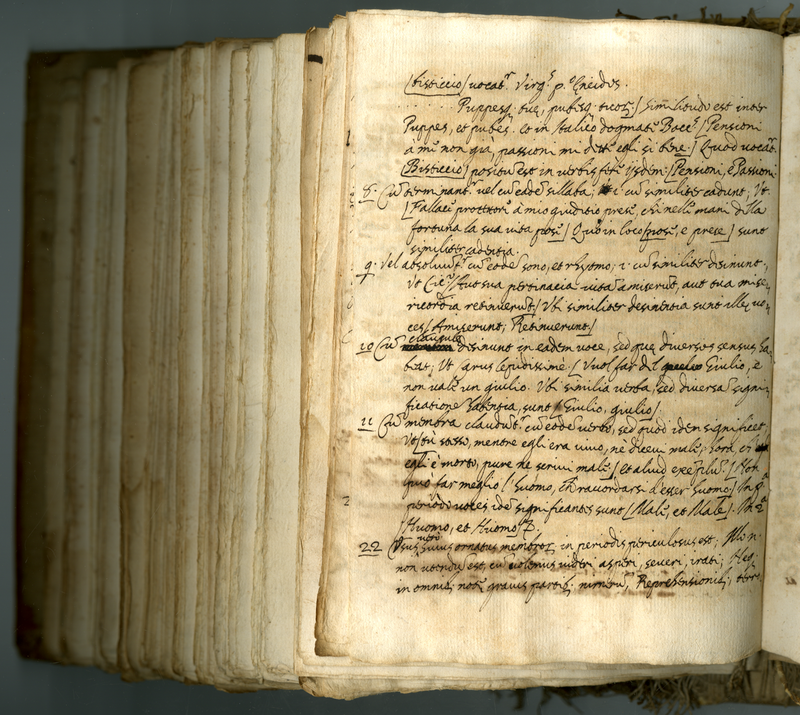 [bisticcio] vocat.r Virg.s p.o Eneidos.
. . . . . . Puppesq. tue, pubesq. tuor; / similitudo est inter
Puppes, et pubes. et in Italico dogmate Bocc. / Pensioni
à mè non già, passioni mi dette egli si bene. / Quod vocat.r
Bisticcio / positum est in verbis ijsdem: / Pensioni, e Passioni
8. Cum terminant.r vel cum eadem sillaba; i cum similiter cadunt; Ut
à mio giuditio prese, chi nelle mani della
fortuna la sua vita pose / Quo in loco / pose, e prese / sunt
similiter cadentia.
9. Vel absoluunt.r cum eodem sono, et rhytmo; i. cum similiter desinunt.
Ut Cic. / Aut sua pertinacia vita amiserunt, aut tua mise-
ricordia retinuerunt / Ubi similiter desinentia sunt ille vo-
ces / Amiserunt; Retinuerunt /
10 Cum clausule desinunt in eadem voce, sed que diversos sensus ha-
beat; Ut lepidissimè. / Vuol far del Giulio, e
non vale un giulio. Ubi similia verba, sed diversa signi-
ficatione habentia, sunt / Giulio, giulio /
11 Cum membra claudunt.r cum eodem verbo, sed quod idem significet,
Ut / tu stesso, mentre egli era vivo, nè dicevi male; hora, ch'
egli è morto, pure ne scrivi male / et aliud exemplum. / Non
può far meglio / l'huomo, che raccordarsi d'esser huomo / In p.a
periodo voces idem significantes sunt / Male, et Male /. In 2.a
/ Huomo, et Huomo /.
22 Usus vero huius ornatus membror. in periodis periculosus est; Nem.
non utendum est, cum volumus videri asperi, severi, irati; Neq.
in omnib. not. gravis partib. nimirum, Reprehensionib., terro-